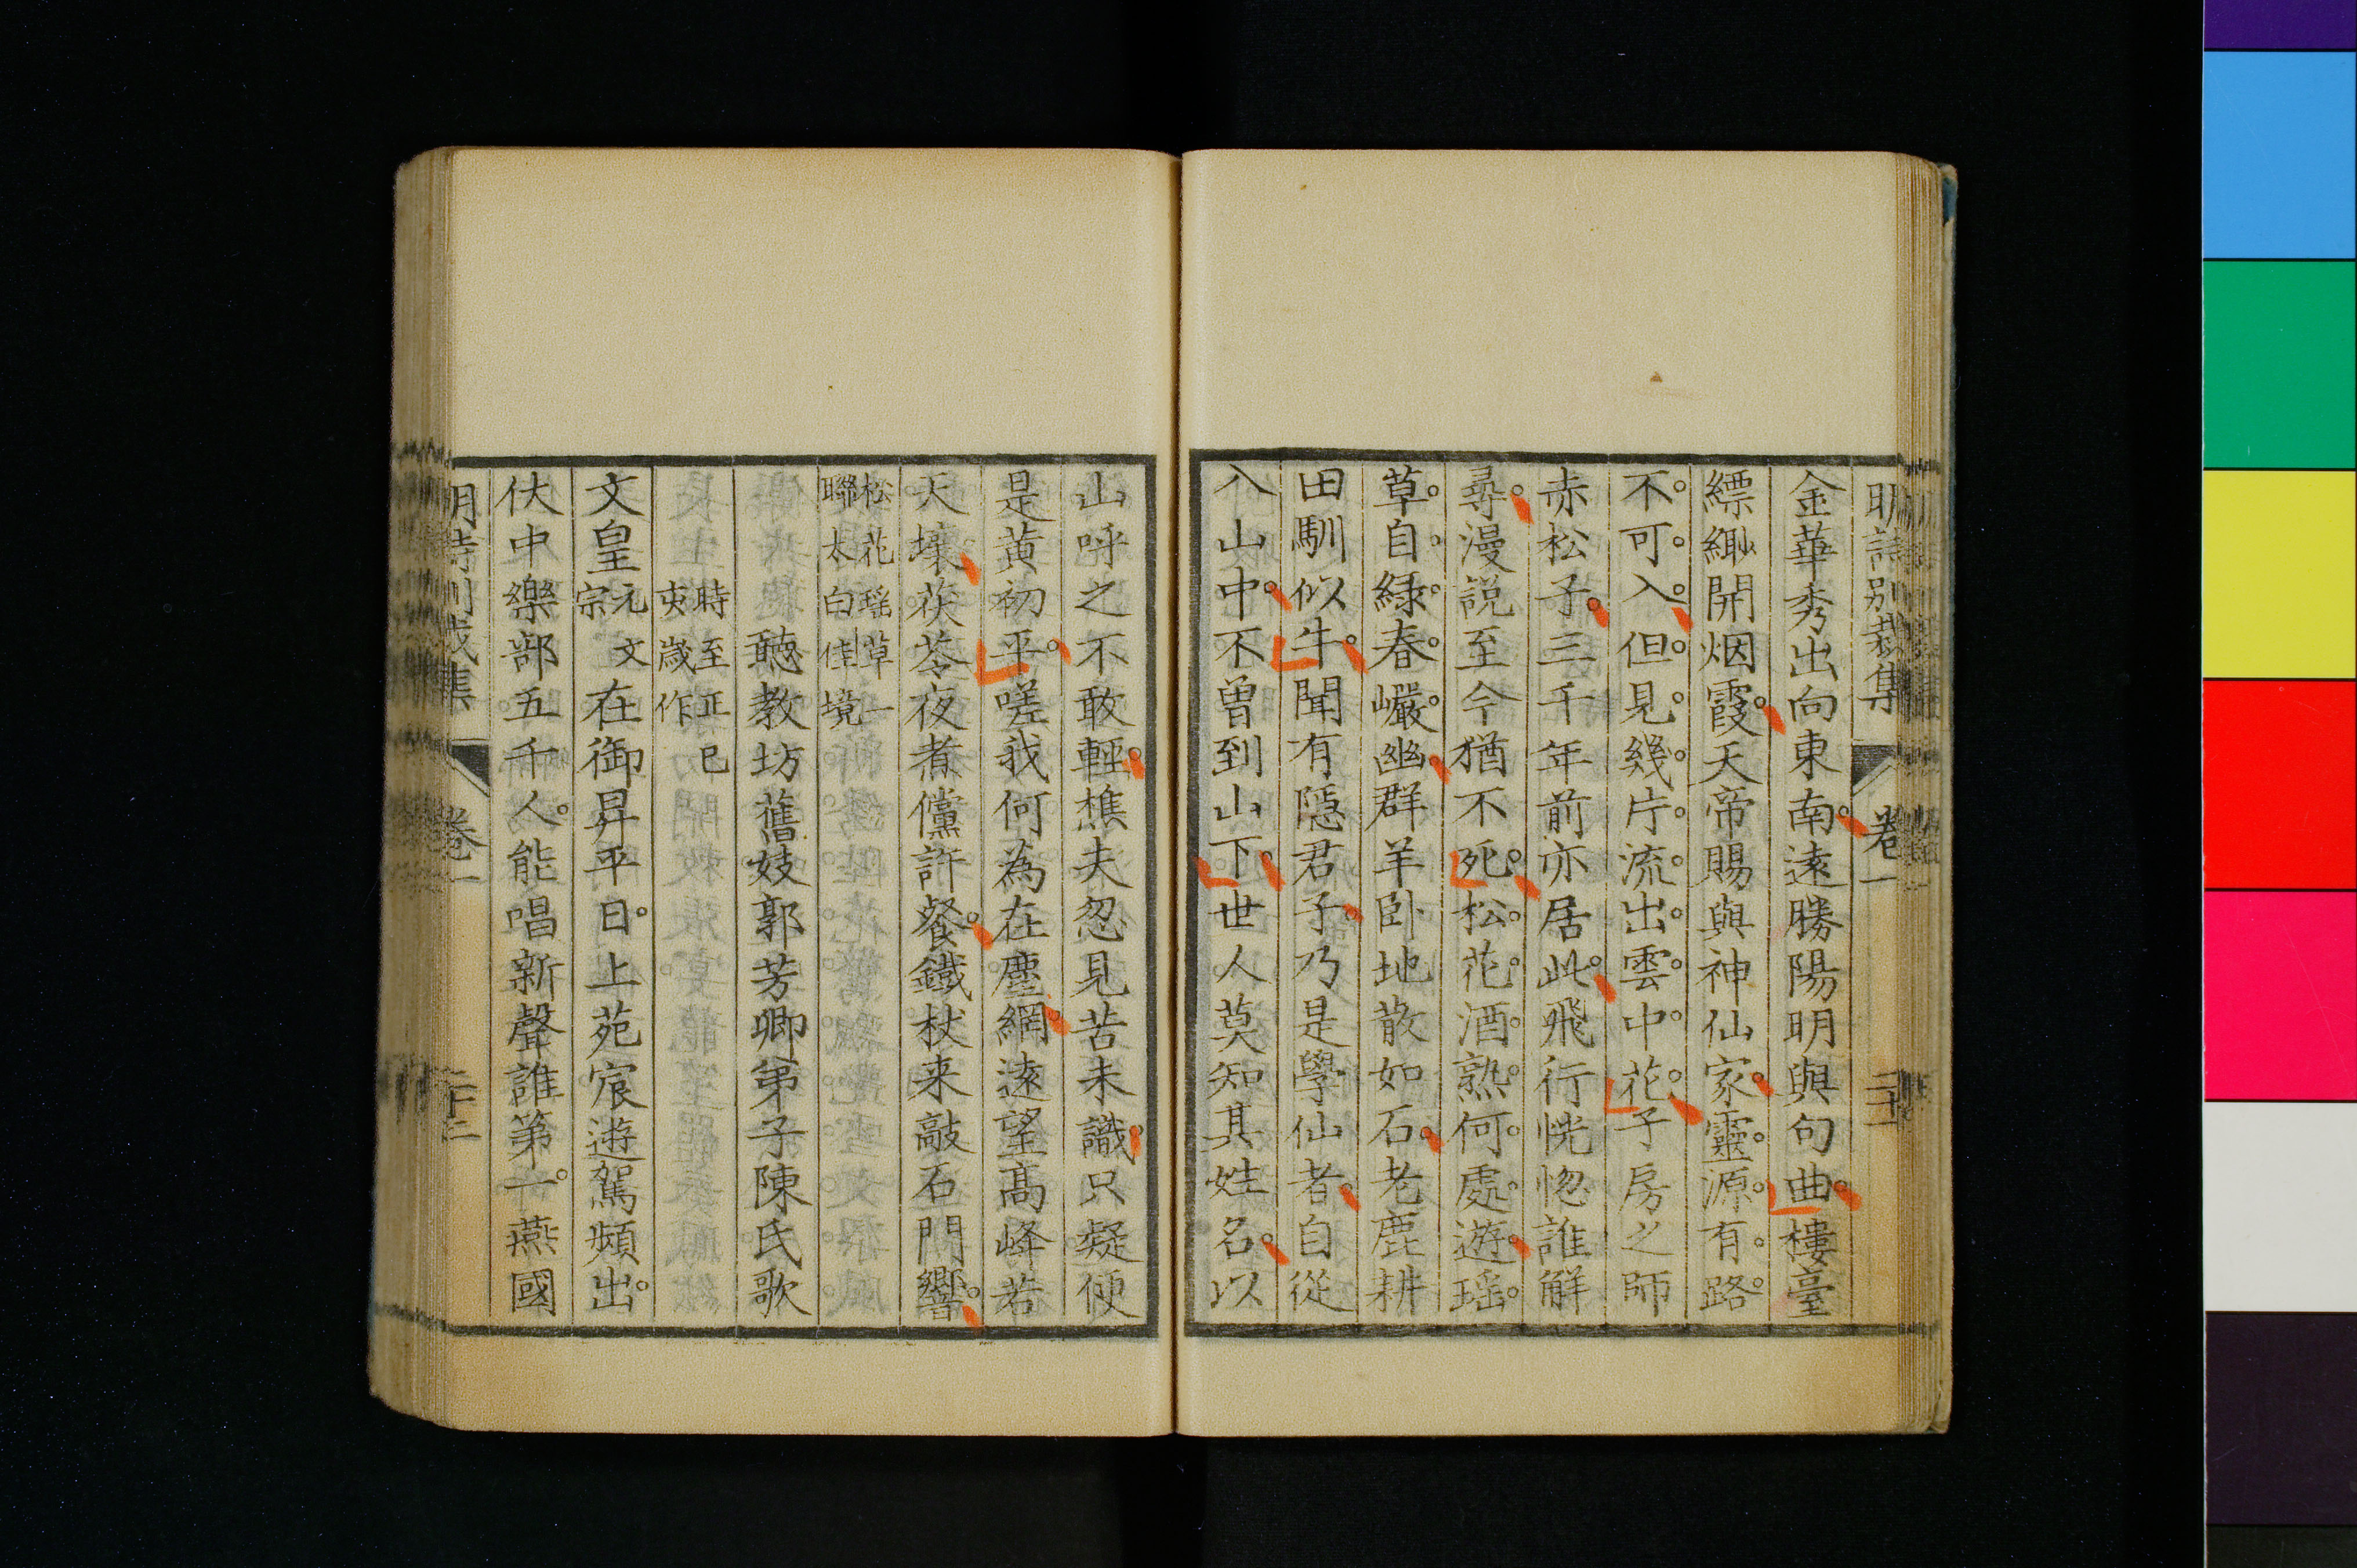 明詩別裁集 卷一 二十一
金華秀出向東南遠勝陽明與句曲樓臺
縹緲開烟霞天帝賜與神仙家靈源有路
不可入但見幾片流出雲中花子房之師
赤松子三千年前亦居此飛行恍惚誰解
尋漫説至今猶不死松花酒熟何處遊瑶
草自緑春巖幽群羊卧地散如石老鹿耕
田馴似牛聞有隱君子乃是學仙者自從
入山中不曾到山下世人莫知其姓名以
山呼之不敢輕樵夫忽見苦未識只疑便
是黄初平嗟我何為在塵網遠望高峰若
天壤茯苓夜煮儻許餐鐵杖来敲石門響
松花瑶草一
聯太白佳境
聽教坊舊妓郭芳卿弟子陳氏歌
時至正巳
亥歲作
文皇元文宗在御昇平日上苑宸遊駕頻出
仗中樂部五千人能唱新聲誰第一燕國
明詩別裁集 卷一 二十二